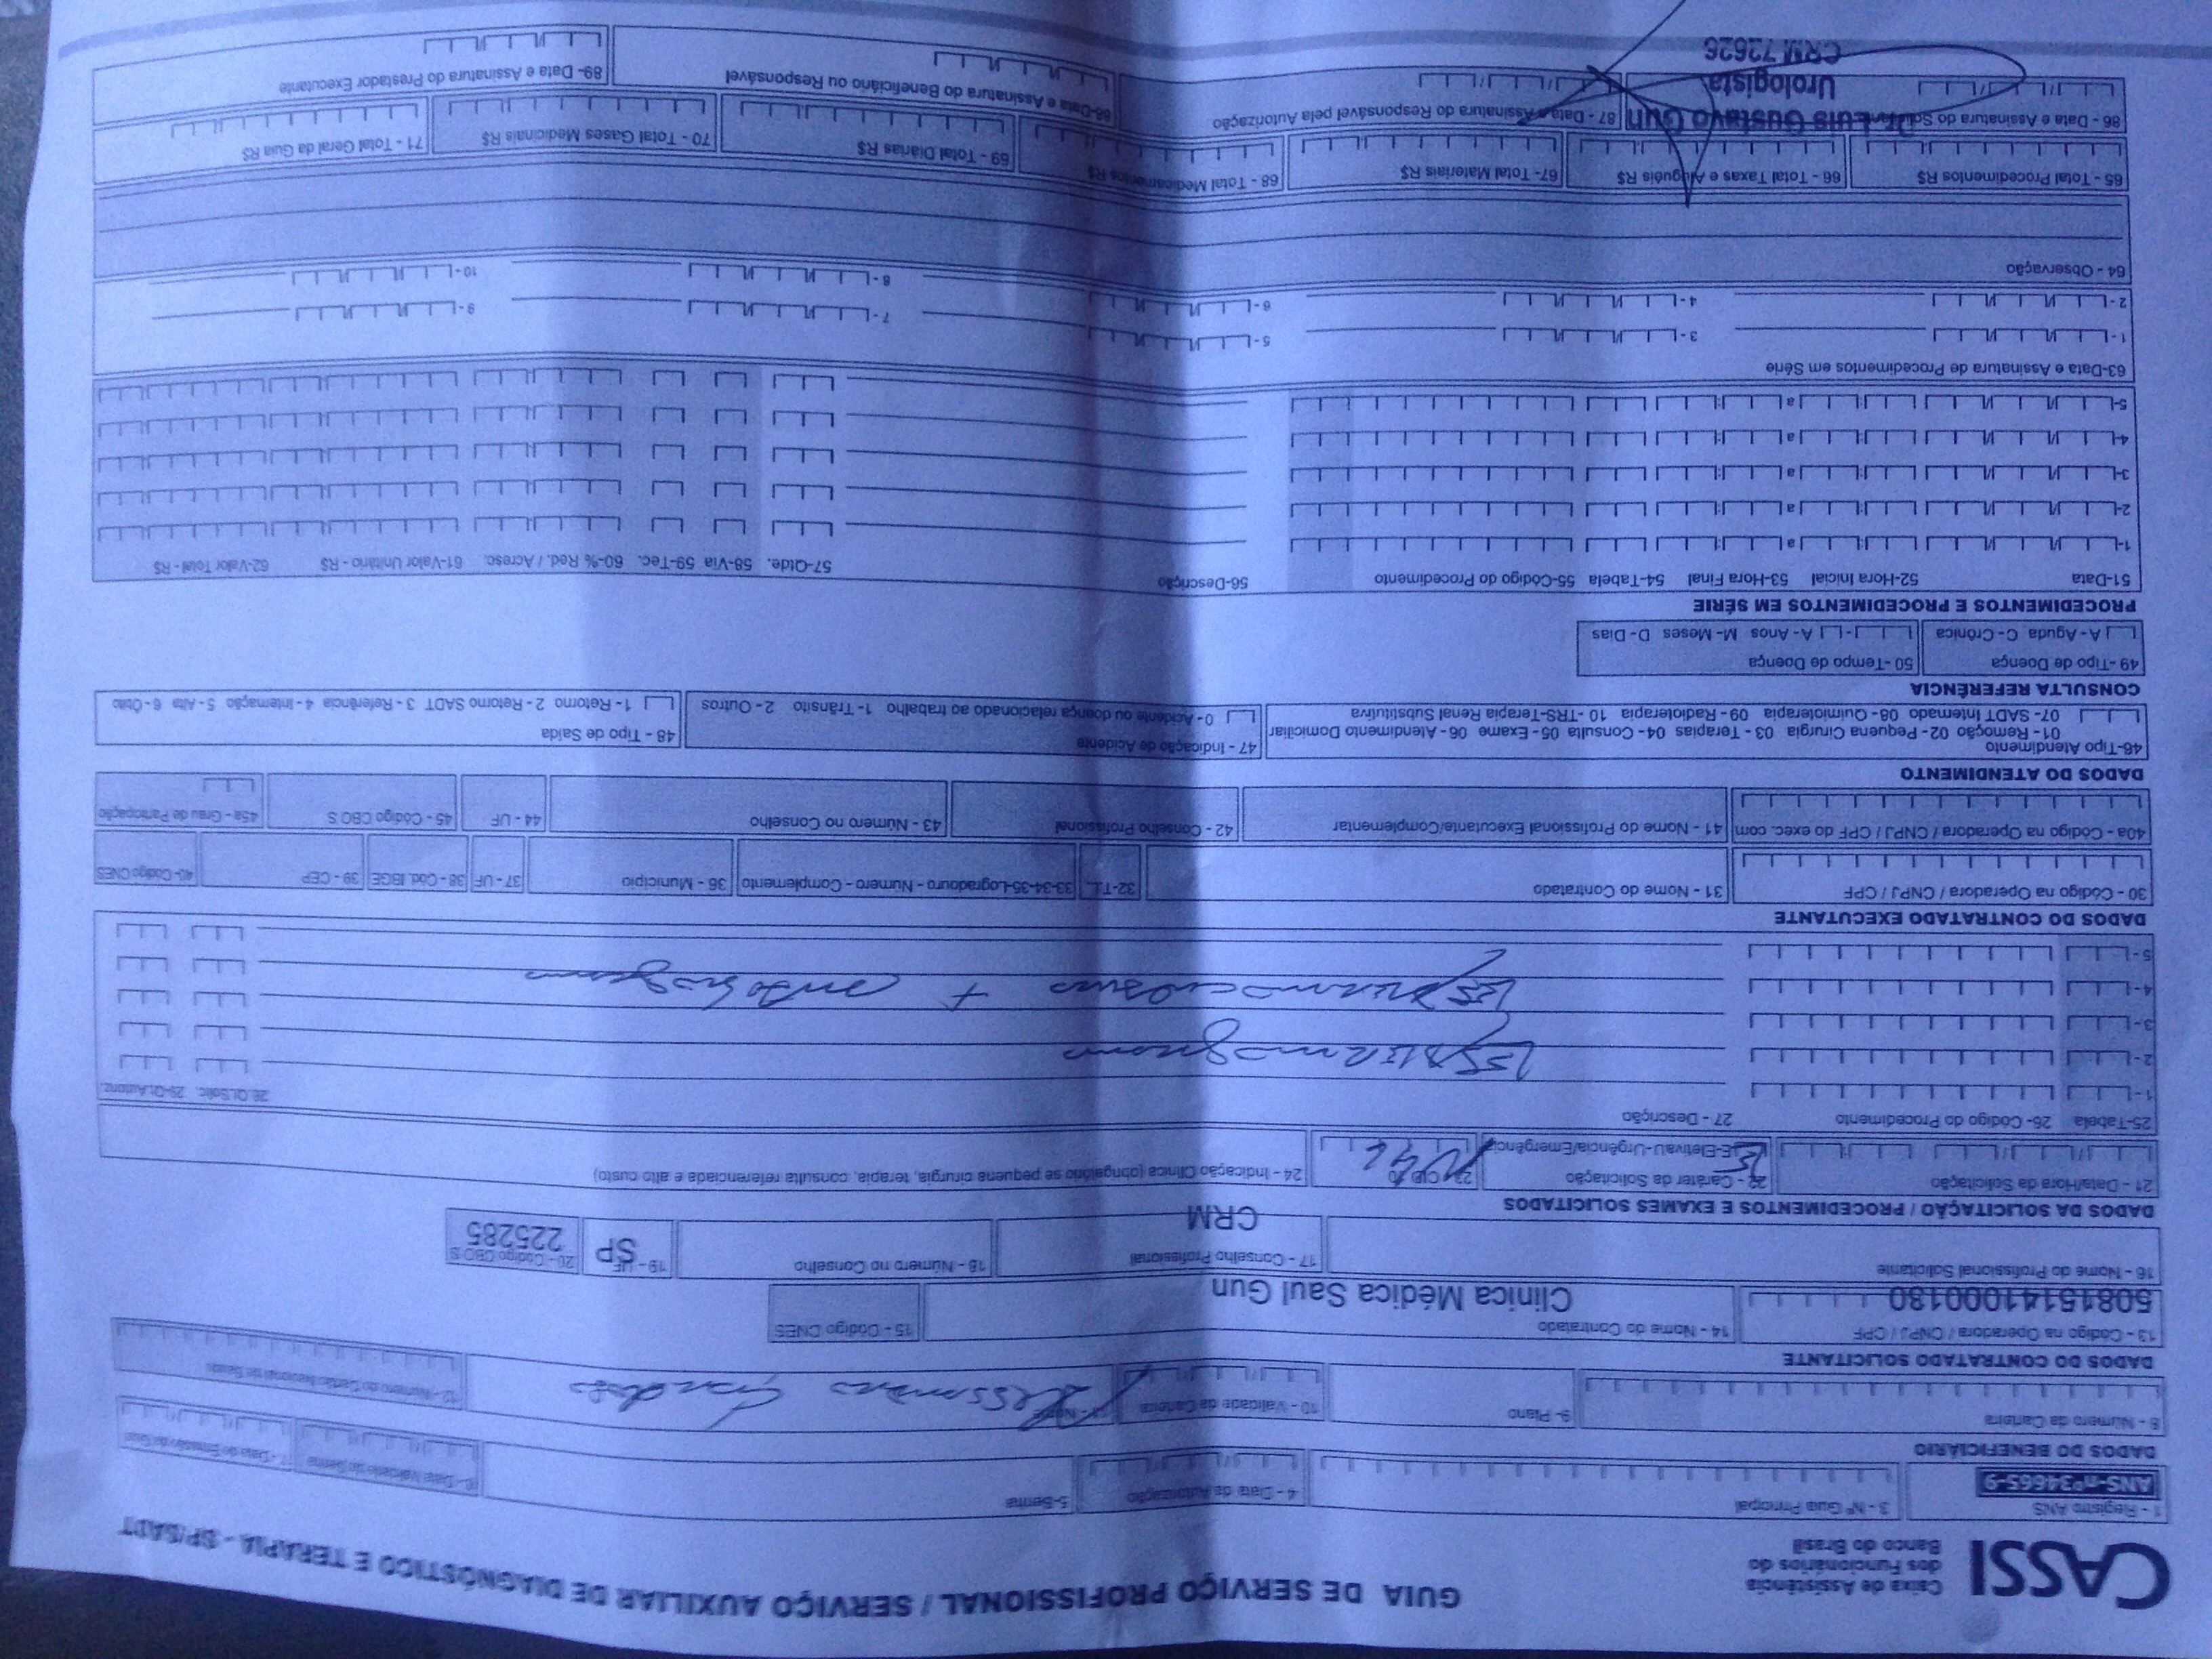 CASSI
Caixa de Assistência
dos Funcionários do
Banco do Brasil
GUIA DE SERVIÇO PROFISSIONAL / SERVIÇO AUXILIAR DE DIAGNÓSTICO E TERAPIA - SP/SADT
1 - Registro ANS
3 - Nº Guia Principal
4 - Data da Autorização
5-Senha
6 - Data Validade da Senha
7 - Data de Emissão da Guia
DADOS DO BENEFICIÁRIO
8 - Número da Carteira
9- Plano
10 - Validade da Carteira
12 - Número do Cartão Nacional de Saúde
DADOS DO CONTRATADO SOLICITANTE
13 - Código na Operadora / CNPJ / CPF
14 - Nome do Contratado
15 - Código CNES
50815141000130
Clinica Médica Saul Gun
16 - Nome do Profissional Solicitante
17 - Conselho Profissional
18 - Número no Conselho
19 - UF
20 - Código CBO S
CRM
SP
225285
DADOS DA SOLICITAÇÃO / PROCEDIMENTOS E EXAMES SOLICITADOS
21 - Data/Hora da Solicitação
22 - Caráter da Solicitação
23 CID 10
24 - Indicação Clínica (obrigatório se pequena cirurgia, terapia, consulta referenciada e alto custo)
E-Eletiva U-Urgência/Emergência
N46
25-Tabela
26- Código do Procedimento
27 - Descrição
28.Qt.Solic.
29-Qt.Autoriz.
1 -
2 - Espermograma
3 -
4 - Espermocultura + antibiograma
5 -
DADOS DO CONTRATADO EXECUTANTE
30 - Código na Operadora / CNPJ / CPF
31 - Nome do Contratado
32-T.L.
33-34-35-Logradouro - Número - Complemento
36 - Município
37 - UF
38 - Cód. IBGE
39 - CEP
40- Código CNES
40a - Código na Operadora / CNPJ / CPF do exec. com
41 - Nome do Profissional Executante/Complementar
42 - Conselho Profissional
43 - Número no Conselho
44 - UF
45 - Código CBO S
45a - Grau de Participação
DADOS DO ATENDIMENTO
46-Tipo Atendimento
01 - Remoção 02 - Pequena Cirurgia 03 - Terapias 04 - Consulta 05 - Exame 06 - Atendimento Domiciliar
07 - SADT Internado 08 - Quimioterapia 09 - Radioterapia 10 -TRS-Terapia Renal Substitutiva
47 - Indicação de Acidente
0 - Acidente ou doença relacionado ao trabalho 1- Trânsito 2- Outros
48 - Tipo de Saída
1- Retorno 2 - Retorno SADT 3 - Referência 4 - Internação 5 - Alta 6 - Óbito
CONSULTA REFERÊNCIA
49 -Tipo de Doença
50 -Tempo de Doença
A - Aguda C - Crônica
A - Anos M- Meses D- Dias
PROCEDIMENTOS E PROCEDIMENTOS EM SÉRIE
51-Data
52-Hora Inicial
53-Hora Final
54-Tabela
55-Código do Procedimento
56-Descrição
57-Qtde.
58-Via
59-Tec.
60-% Red. / Acresc.
61-Valor Unitário - R$
62-Valor Total - R$
1- a
2- a
3- a
4- a
5- a
63-Data e Assinatura de Procedimentos em Série
1 - 3 - 5 - 7 - 9 -
2 - 4 - 6 - 8 - 10 -
64 - Observação
65 - Total Procedimentos R$
66 - Total Taxas e Aluguéis R$
67 - Total Materiais R$
68 - Total Medicamentos R$
69 - Total Diárias R$
70 - Total Gases Medicinais R$
71 - Total Geral da Guia R$
86 - Data e Assinatura do
87 - Data e Assinatura do Responsável pela Autorização
88-Data e Assinatura do Beneficiário ou Responsável
89- Data e Assinatura do Prestador Executante
Luis Gustavo Gun
Urologista
CRM 72626